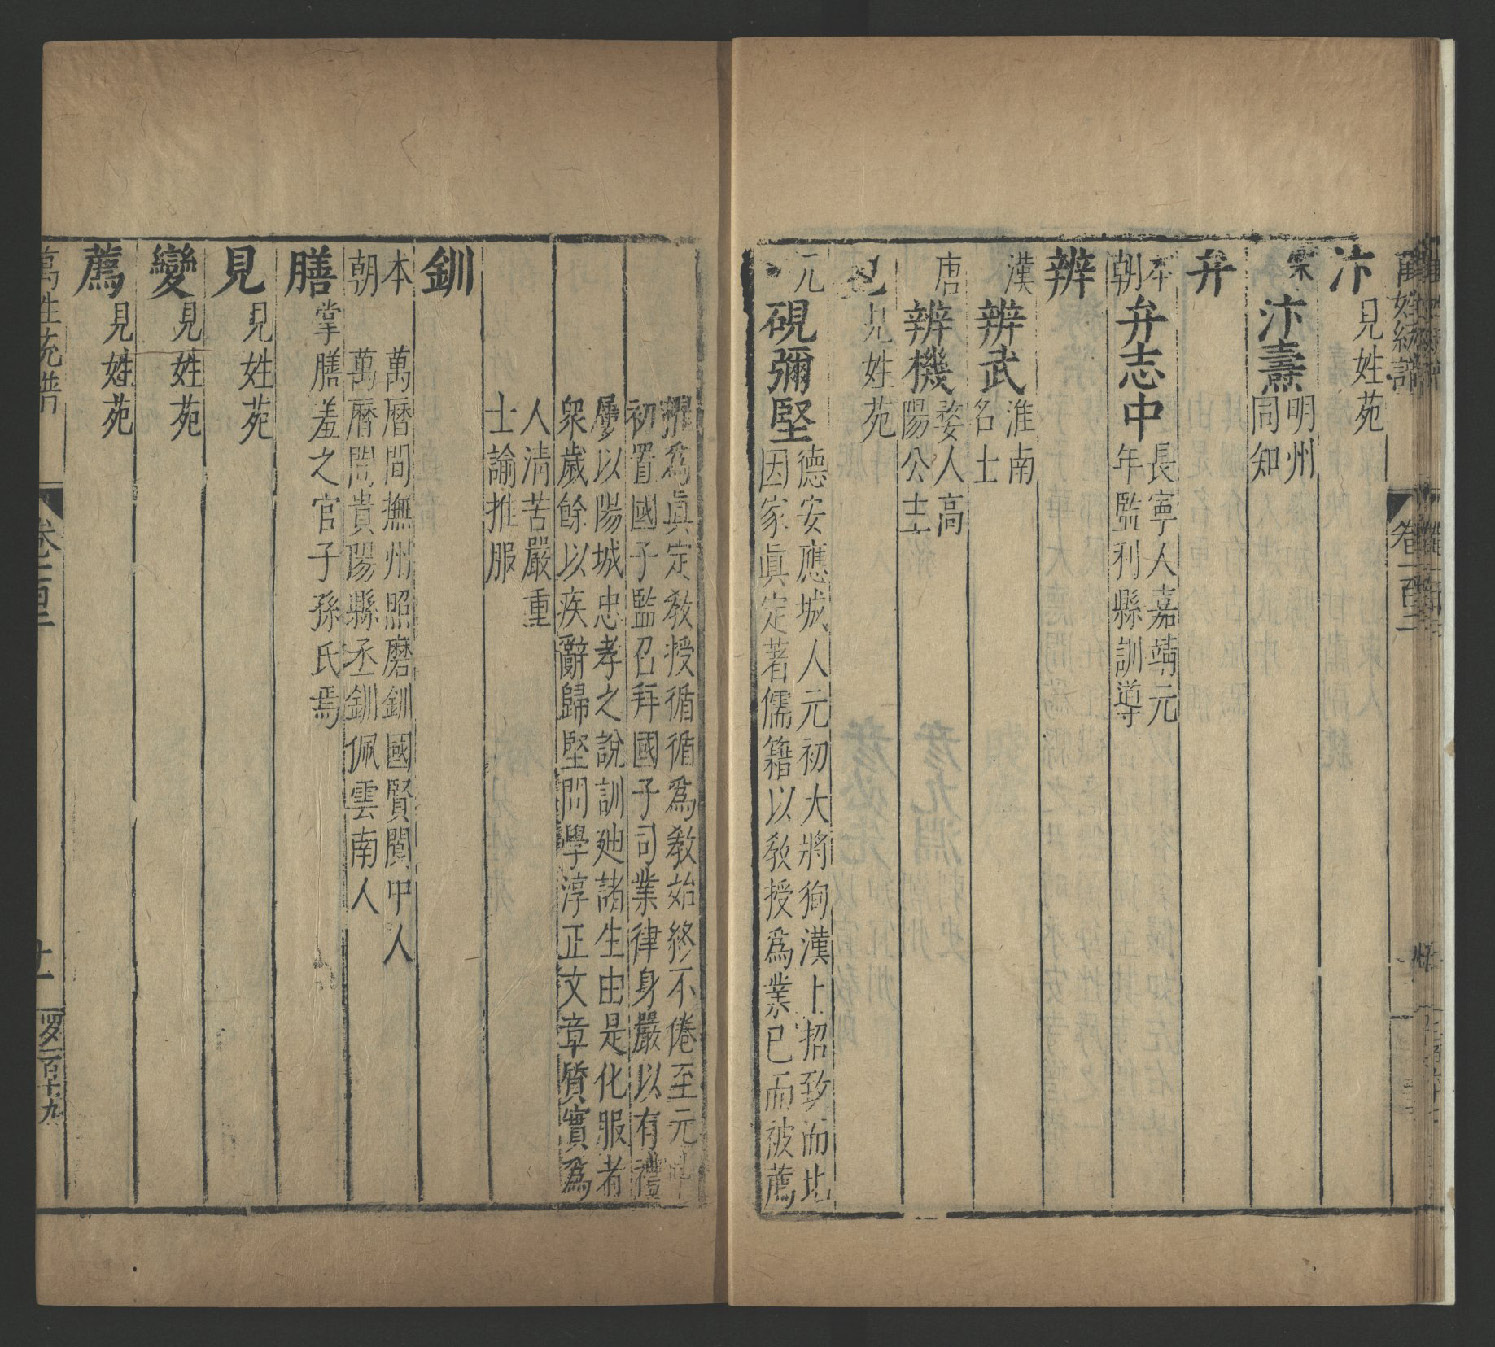 萬姓統譜
卷一百二
汴
見姓苑
宋
汴壽
明州
同知
弁
本
朝
弁志中
長寧人嘉靖元
年監利縣訓導
辨
漢
辨武
淮南
名士
唐
辨機
婺人高
陽公主
見姓苑
元
硯彌堅
德安應城人元初大將狥漢上招致而北
因家眞定著儒籍以敎授爲業已而被薦
擢爲眞定敎授循循爲敎始終不倦至元
初置國子監召拜國子司業律身嚴以有禮
屢以陽城忠孝之說訓廸諸生由是化服者
衆歲餘以疾辭歸堅問學淳正文章質實爲
人清苦嚴重
士論推服
釧
本
朝
萬曆間撫州照磨釧國賢閬中人
萬曆間貴陽縣丞釧佩雲南人
膳
掌膳羞之官子孫氏焉
見
見姓苑
變
見姓苑
薦
見姓苑
萬姓統譜
卷一百二
十一